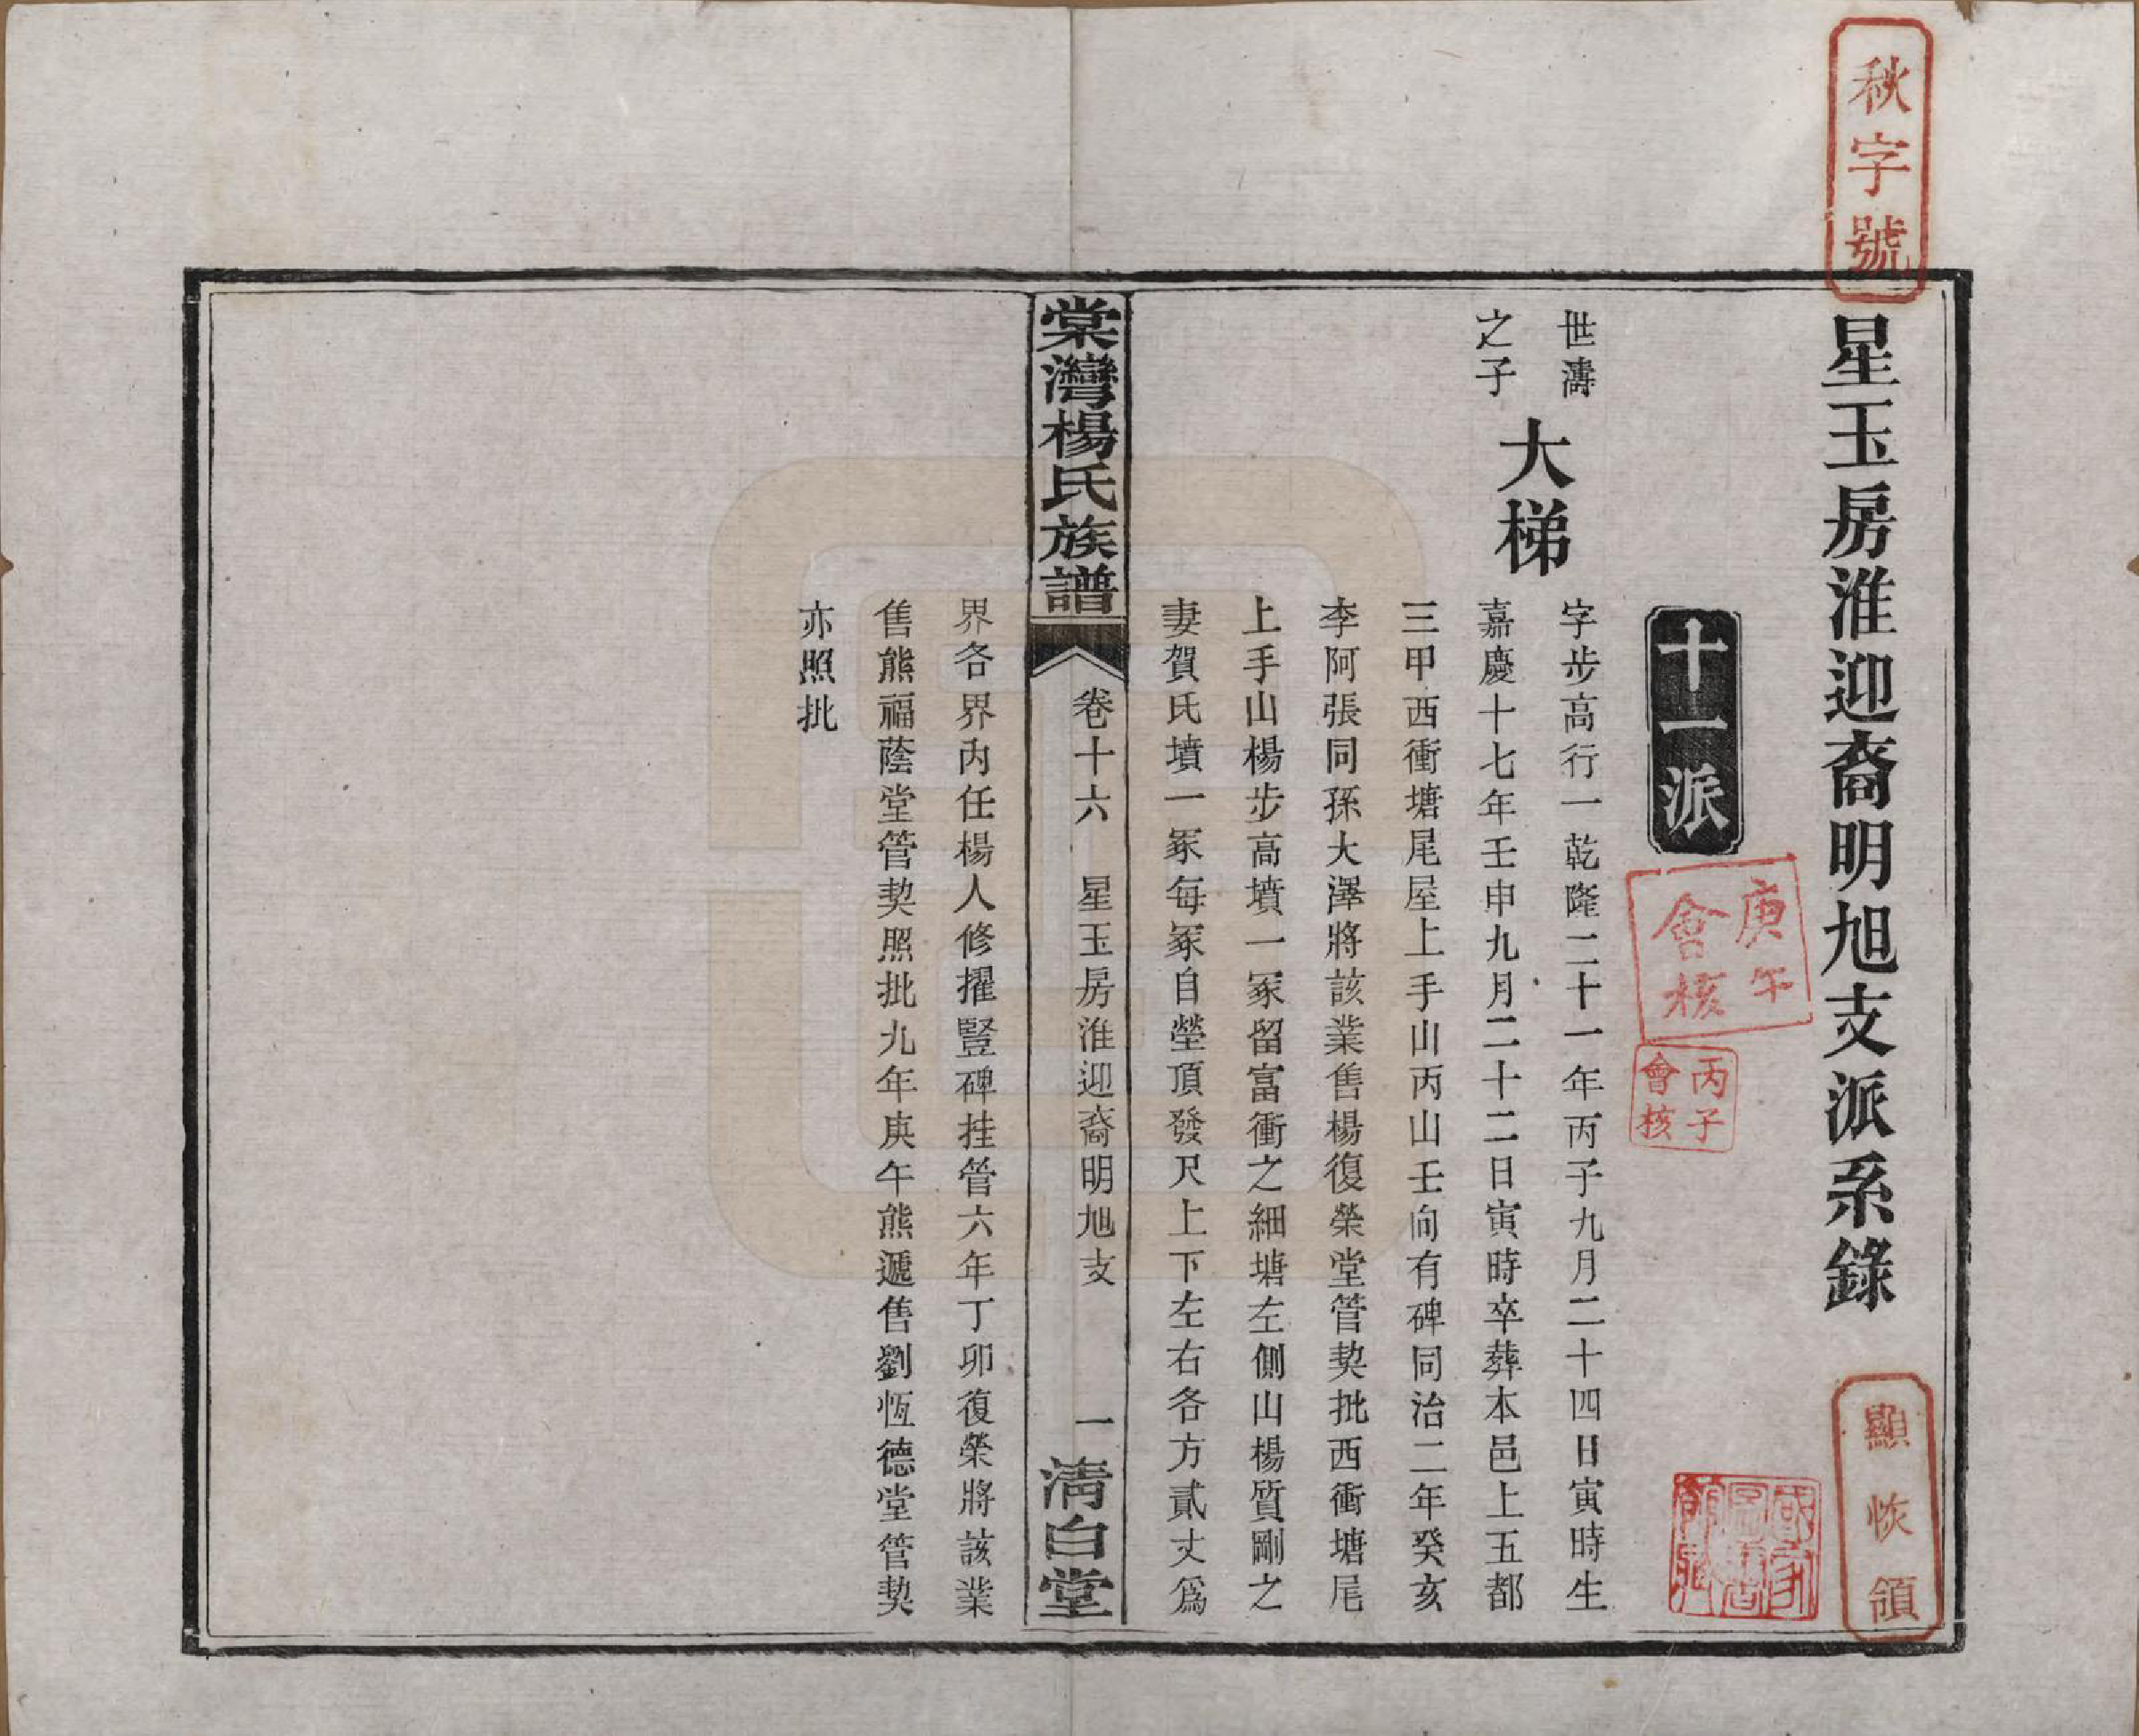 秋字號
星玉房淮迎裔明旭支派系錄
顯恢領
十一派
庚午
會核
丙子
會核
國家
圖書
館藏
世濤
之子
大梯
字步高行一乾隆二十一年丙子九月二十四日寅時生
嘉慶十七年壬申九月二十二日寅時卒葬本邑上五都
三甲西衝塘尾屋上手山丙山壬向有碑同治二年癸亥
李阿張同孫大澤將該業售楊復榮堂管契批西衝塘尾
上手山楊步高墳一冢留富衝之細塘左側山楊質剛之
妻賀氏墳一冢每冢自塋頂發尺上下左右各方貳丈爲
棠灣楊氏族譜
卷十六 星玉房淮迎裔明旭支 一
清白堂
界各界內任楊人修擢豎碑挂管六年丁卯復榮將該業
售熊福蔭堂管契照批九年庚午熊遞售劉恆德堂管契
亦照批